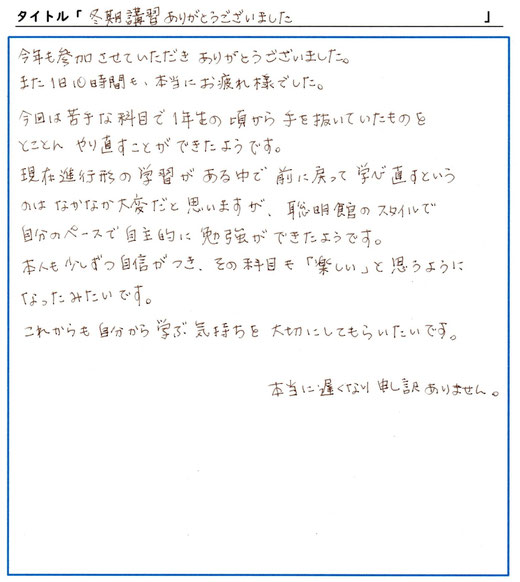 タイトル「 冬期講習ありがとうございました 」
今年も参加させていただき ありがとうございました。
また1日10時間も、本当にお疲れ様でした。
今回は苦手な科目で1年生の頃から手を抜いていたものを
とことん やり直すことができたようです。
現在進行形の学習がある中で前に戻って学び直すという
のはなかなか大変だと思いますが、聡明館のスタイルで
自分のペースで自主的に勉強ができたようです。
本人も少しずつ自信がつき、その科目も「楽しい」と思うように
なったみたいです。
これからも自分から学ぶ気持ちを大切にしてもらいたいです。
本当に遅くなり申し訳ありません。